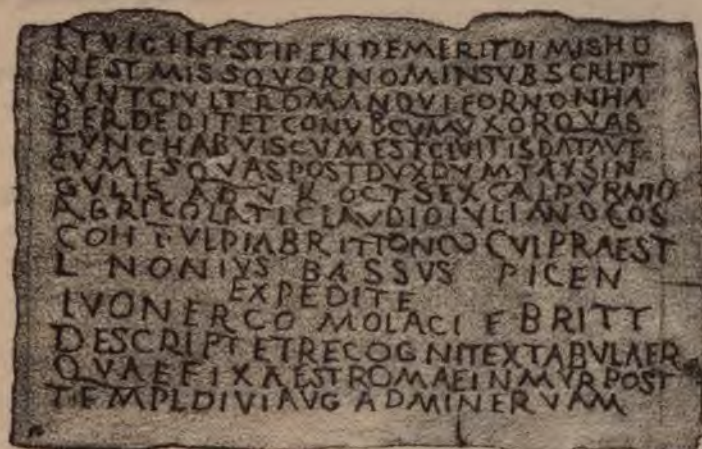 ET VIGINT STIPEN DEMERIT DIMIS HO
NEST MISSO QVOR NOMIN SVBSCRIPT
SVNT CIVIT ROMAN QVI EOR NON HA
BER DEDIT ET CONVB CVM VXOR QVAS
TVNC HABVIS CVM EST CIVITIS DATA VT
CVM IS QVAS POST DVX DVMTAX SIN
GVLIS A D V K OCT SEX CALPVRNIO
AGRICOLA TI CLAVDIO IVLIANO COS
COH I VLPIA BRITTON ∞ CVI PRAEST
L NONIVS BASSVS PICEN
EXPEDITE
IVONERCO MOLACI F BRITT
DESCRIPT ET RECOGNIT EX TABVLA ER
QVAE FIXA EST ROMAE IN MVR POST
TEMPL DIVI AVG AD MINERVAM